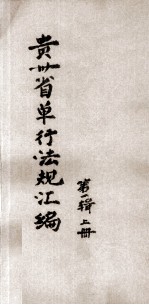 贵州省单行法规汇编
第一辑上册